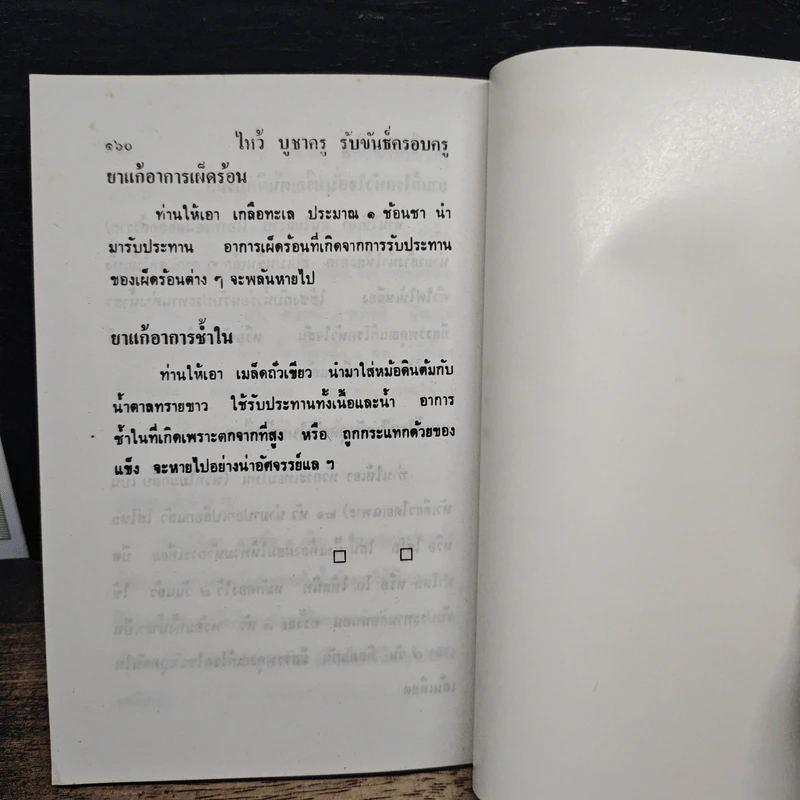 ๑๖๐ ไหว้ บูชาครู รับขันธ์ครอบครู
ยาแก้อาการเผ็ดร้อน
ท่านให้เอา เกลือทะเล ประมาณ ๑ ช้อนชา นำ
มารับประทาน อาการเผ็ดร้อนที่เกิดจากการรับประทาน
ของเผ็ดร้อนต่าง ๆ จะพลันหายไป
ยาแก้อาการช้ำใน
ท่านให้เอา เมล็ดถั่วเขียว นำมาใส่หม้อดินต้มกับ
น้ำตาลทรายขาว ใช้รับประทานทั้งเนื้อและน้ำ อาการ
ช้ำในที่เกิดเพราะตกจากที่สูง หรือ ถูกกระแทกด้วยของ
แข็ง จะหายไปอย่างน่าอัศจรรย์แล ฯ